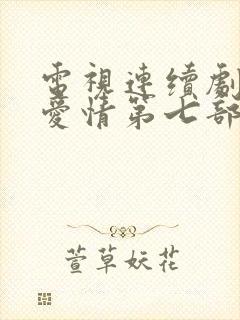 電視連續劇
愛情第七部
萱草妖花